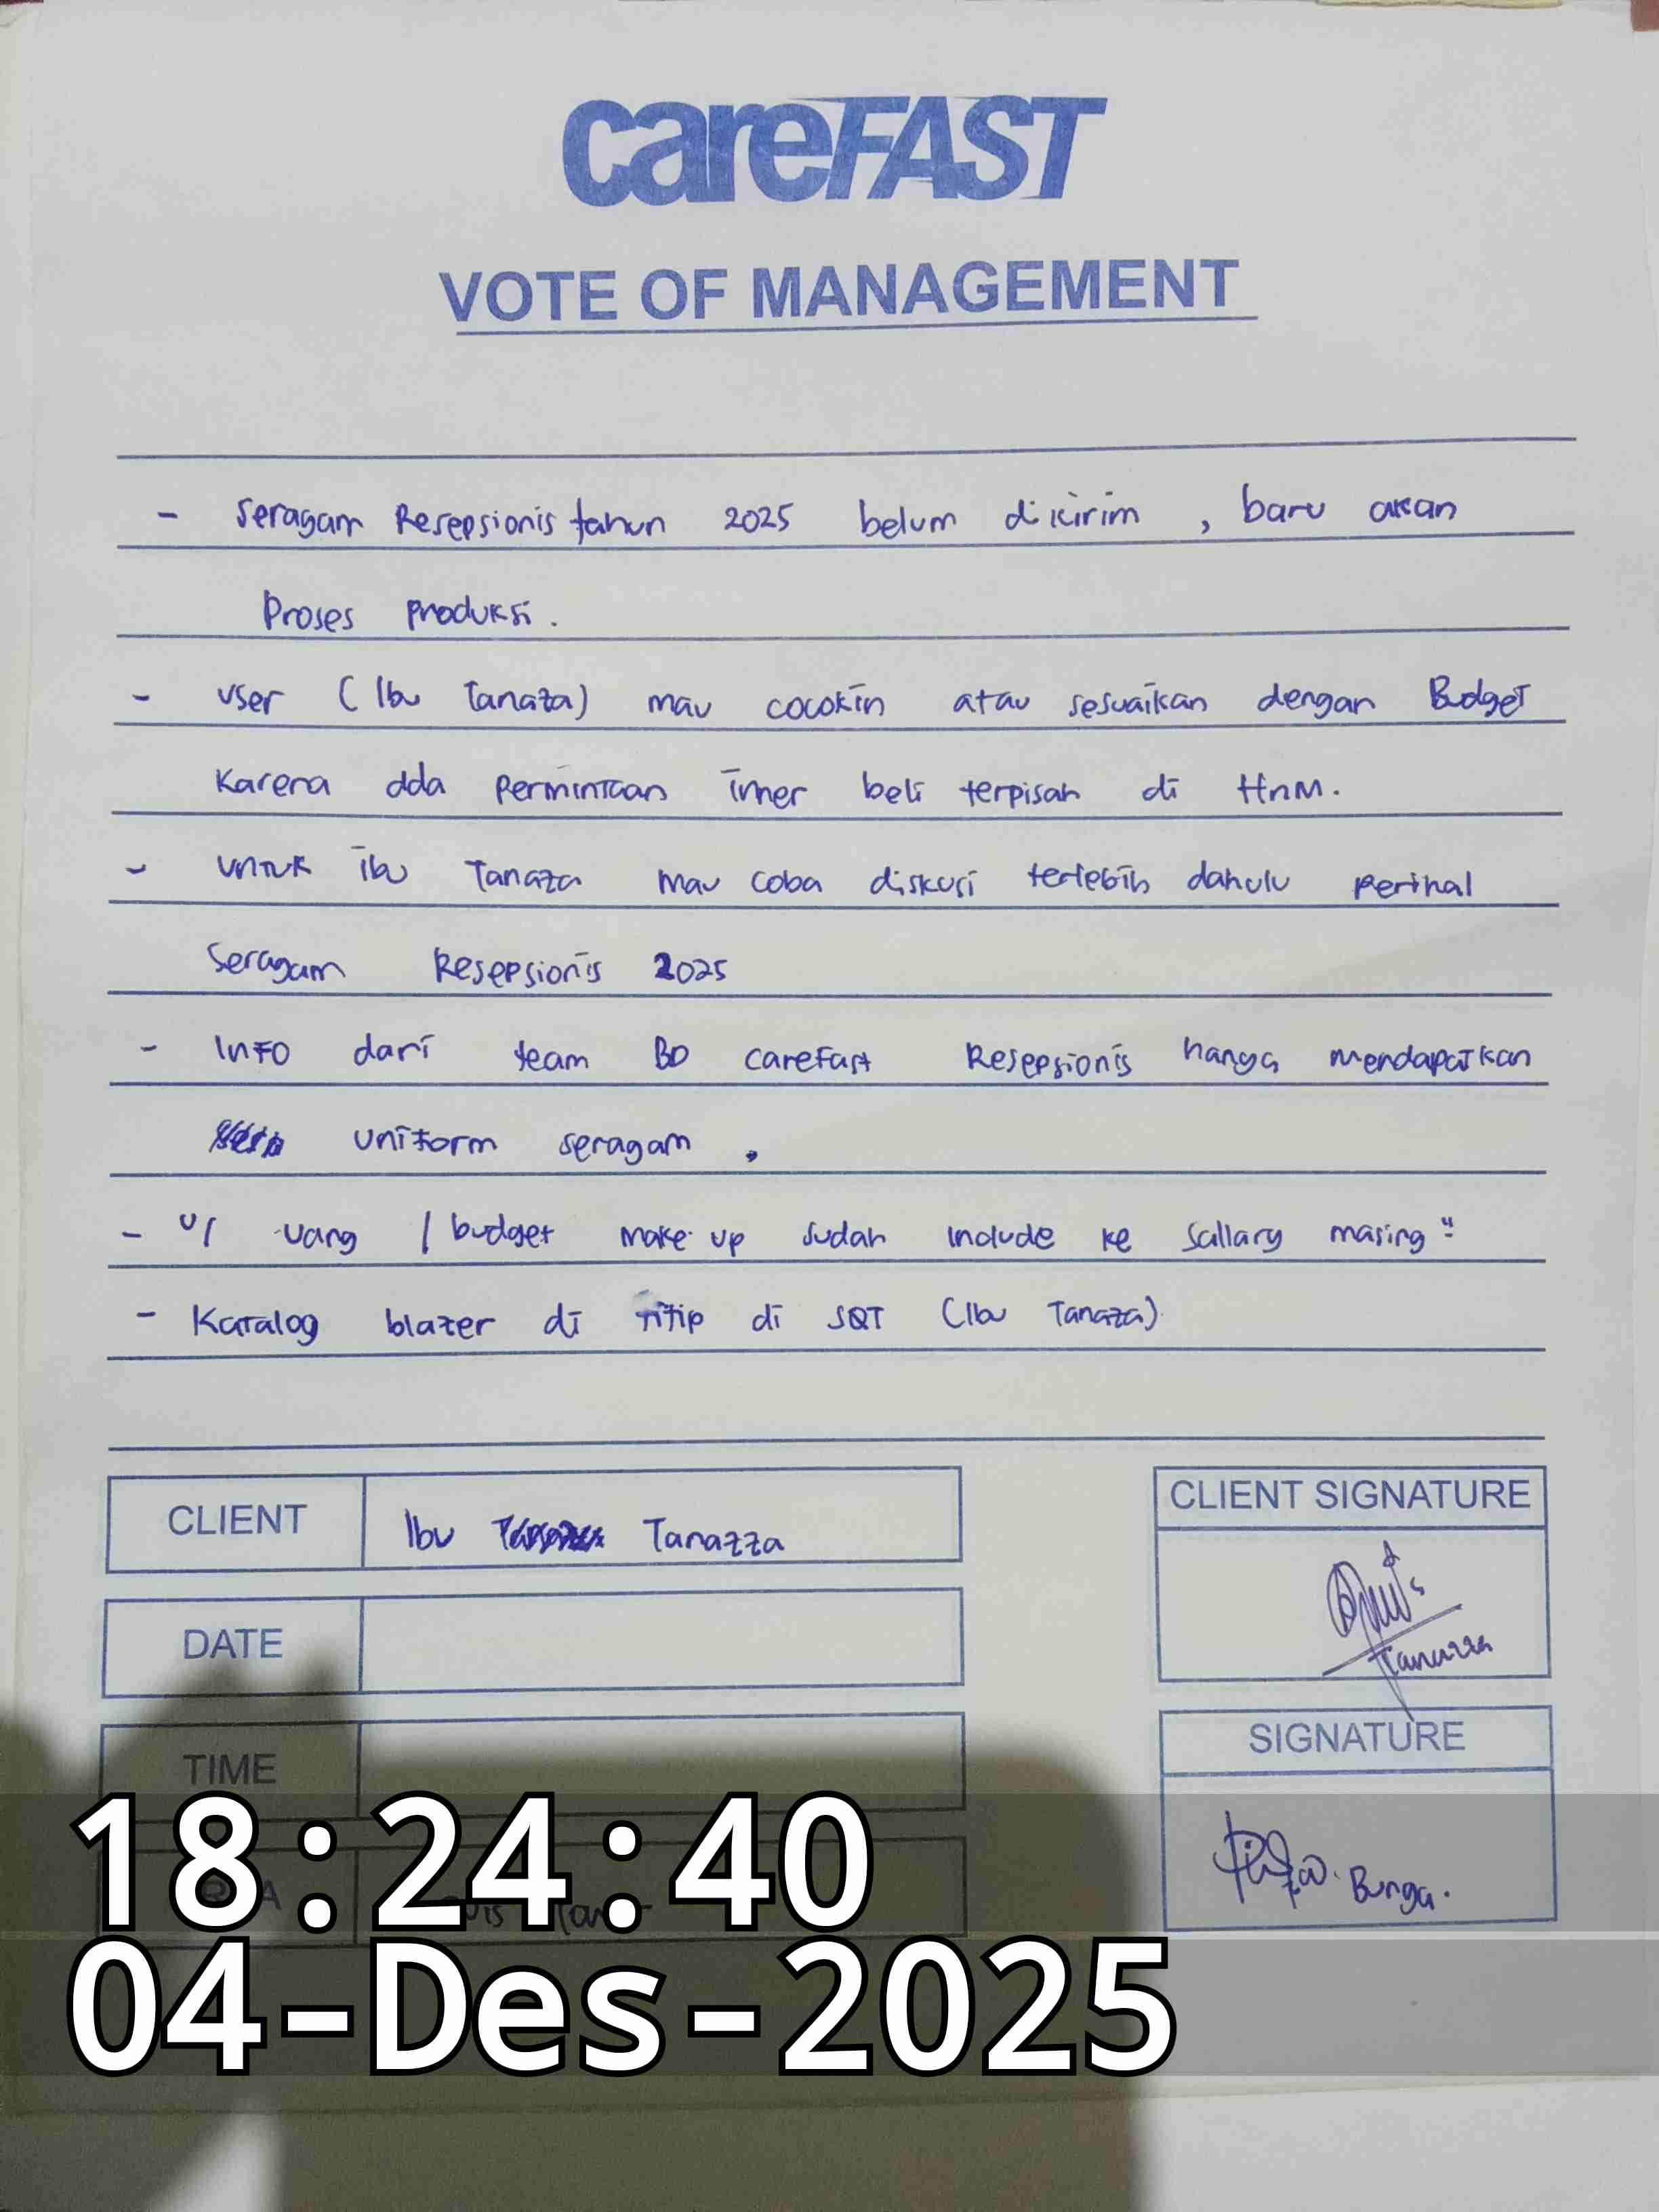 careFAST
VOTE OF MANAGEMENT
- Seragam Resepsionis tahun 2025 belum dikirim , baru akan
Proses produksi.
- User (Ibu Tanaza) mau cocokin atau sesuaikan dengan Budget
Karena ada permintaan inner beli terpisah di HnM.
- Untuk ibu Tanaza mau coba diskusi terlebih dahulu perihal
Seragam Resepsionis 2025
- Info dari team BD carefast Resepsionis hanya mendapatkan
uniform seragam .
- U/ uang / budget make up sudah include ke sallary masing"
- Katalog blazer di titip di SQT (Ibu Tanaza)
CLIENT
Ibu Tanazza
CLIENT SIGNATURE
Tanazza
DATE
TIME
SIGNATURE
Bunga.
18:24:40
04-Des-2025